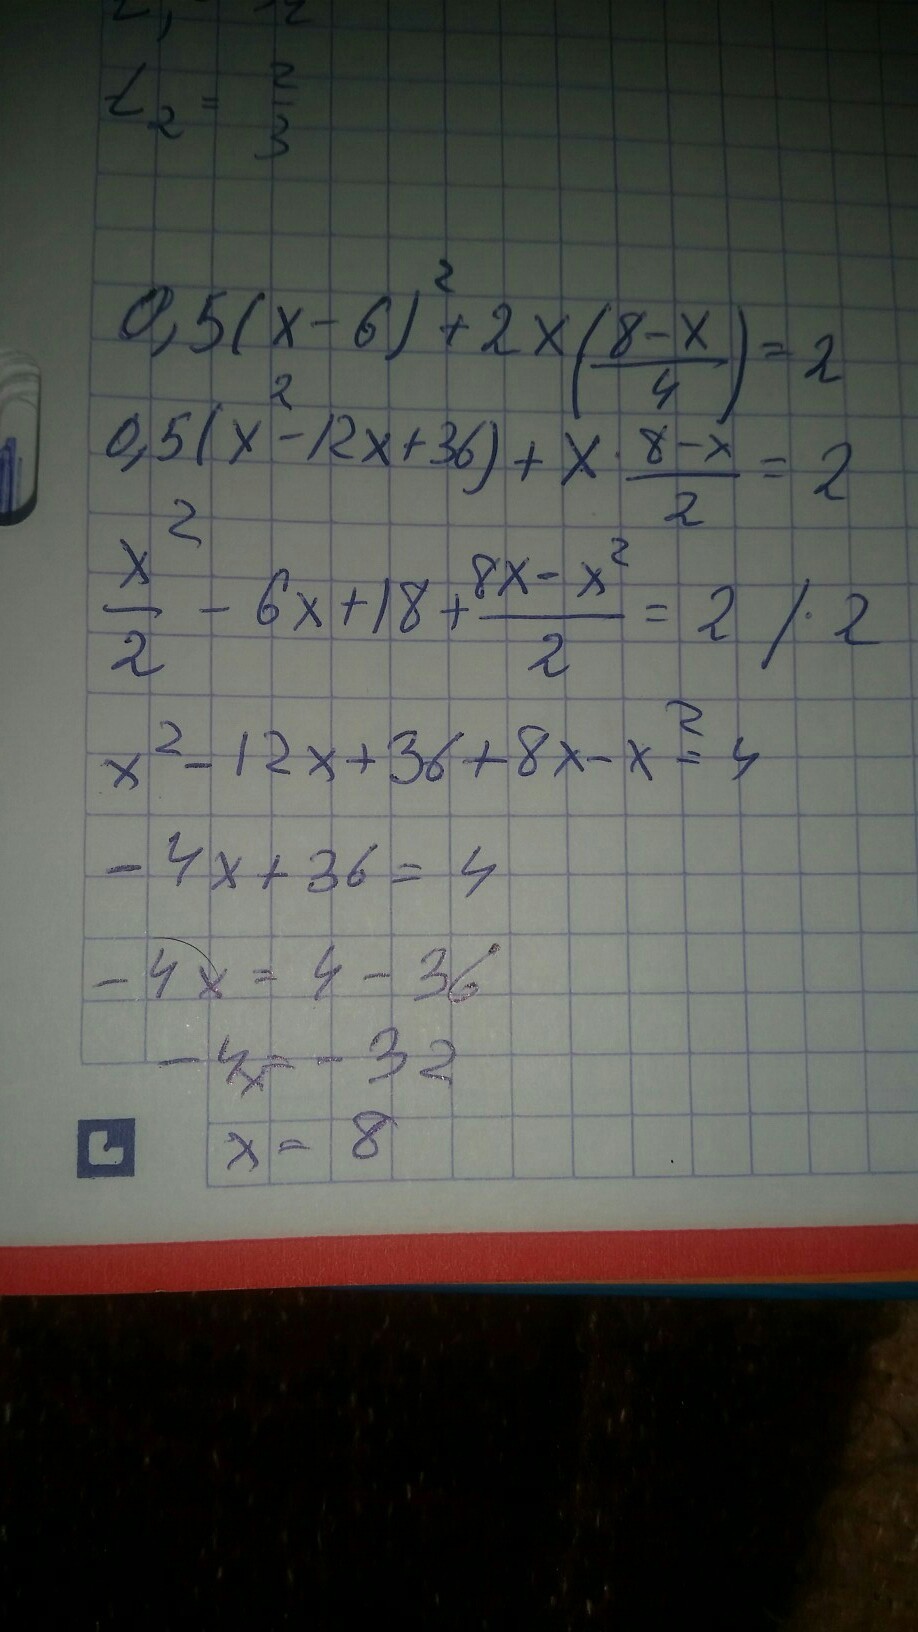 t₂ = 2/3
0,5(x-6)² + 2x((8-x)/4) = 2
0,5(x²-12x+36) + x·(8-x)/2 = 2
x²/2 - 6x+18+(8x-x²)/2 = 2 /·2
x²-12x+36+8x-x²=4
-4x+36=4
-4x=4-36
-4x=-32
x=8